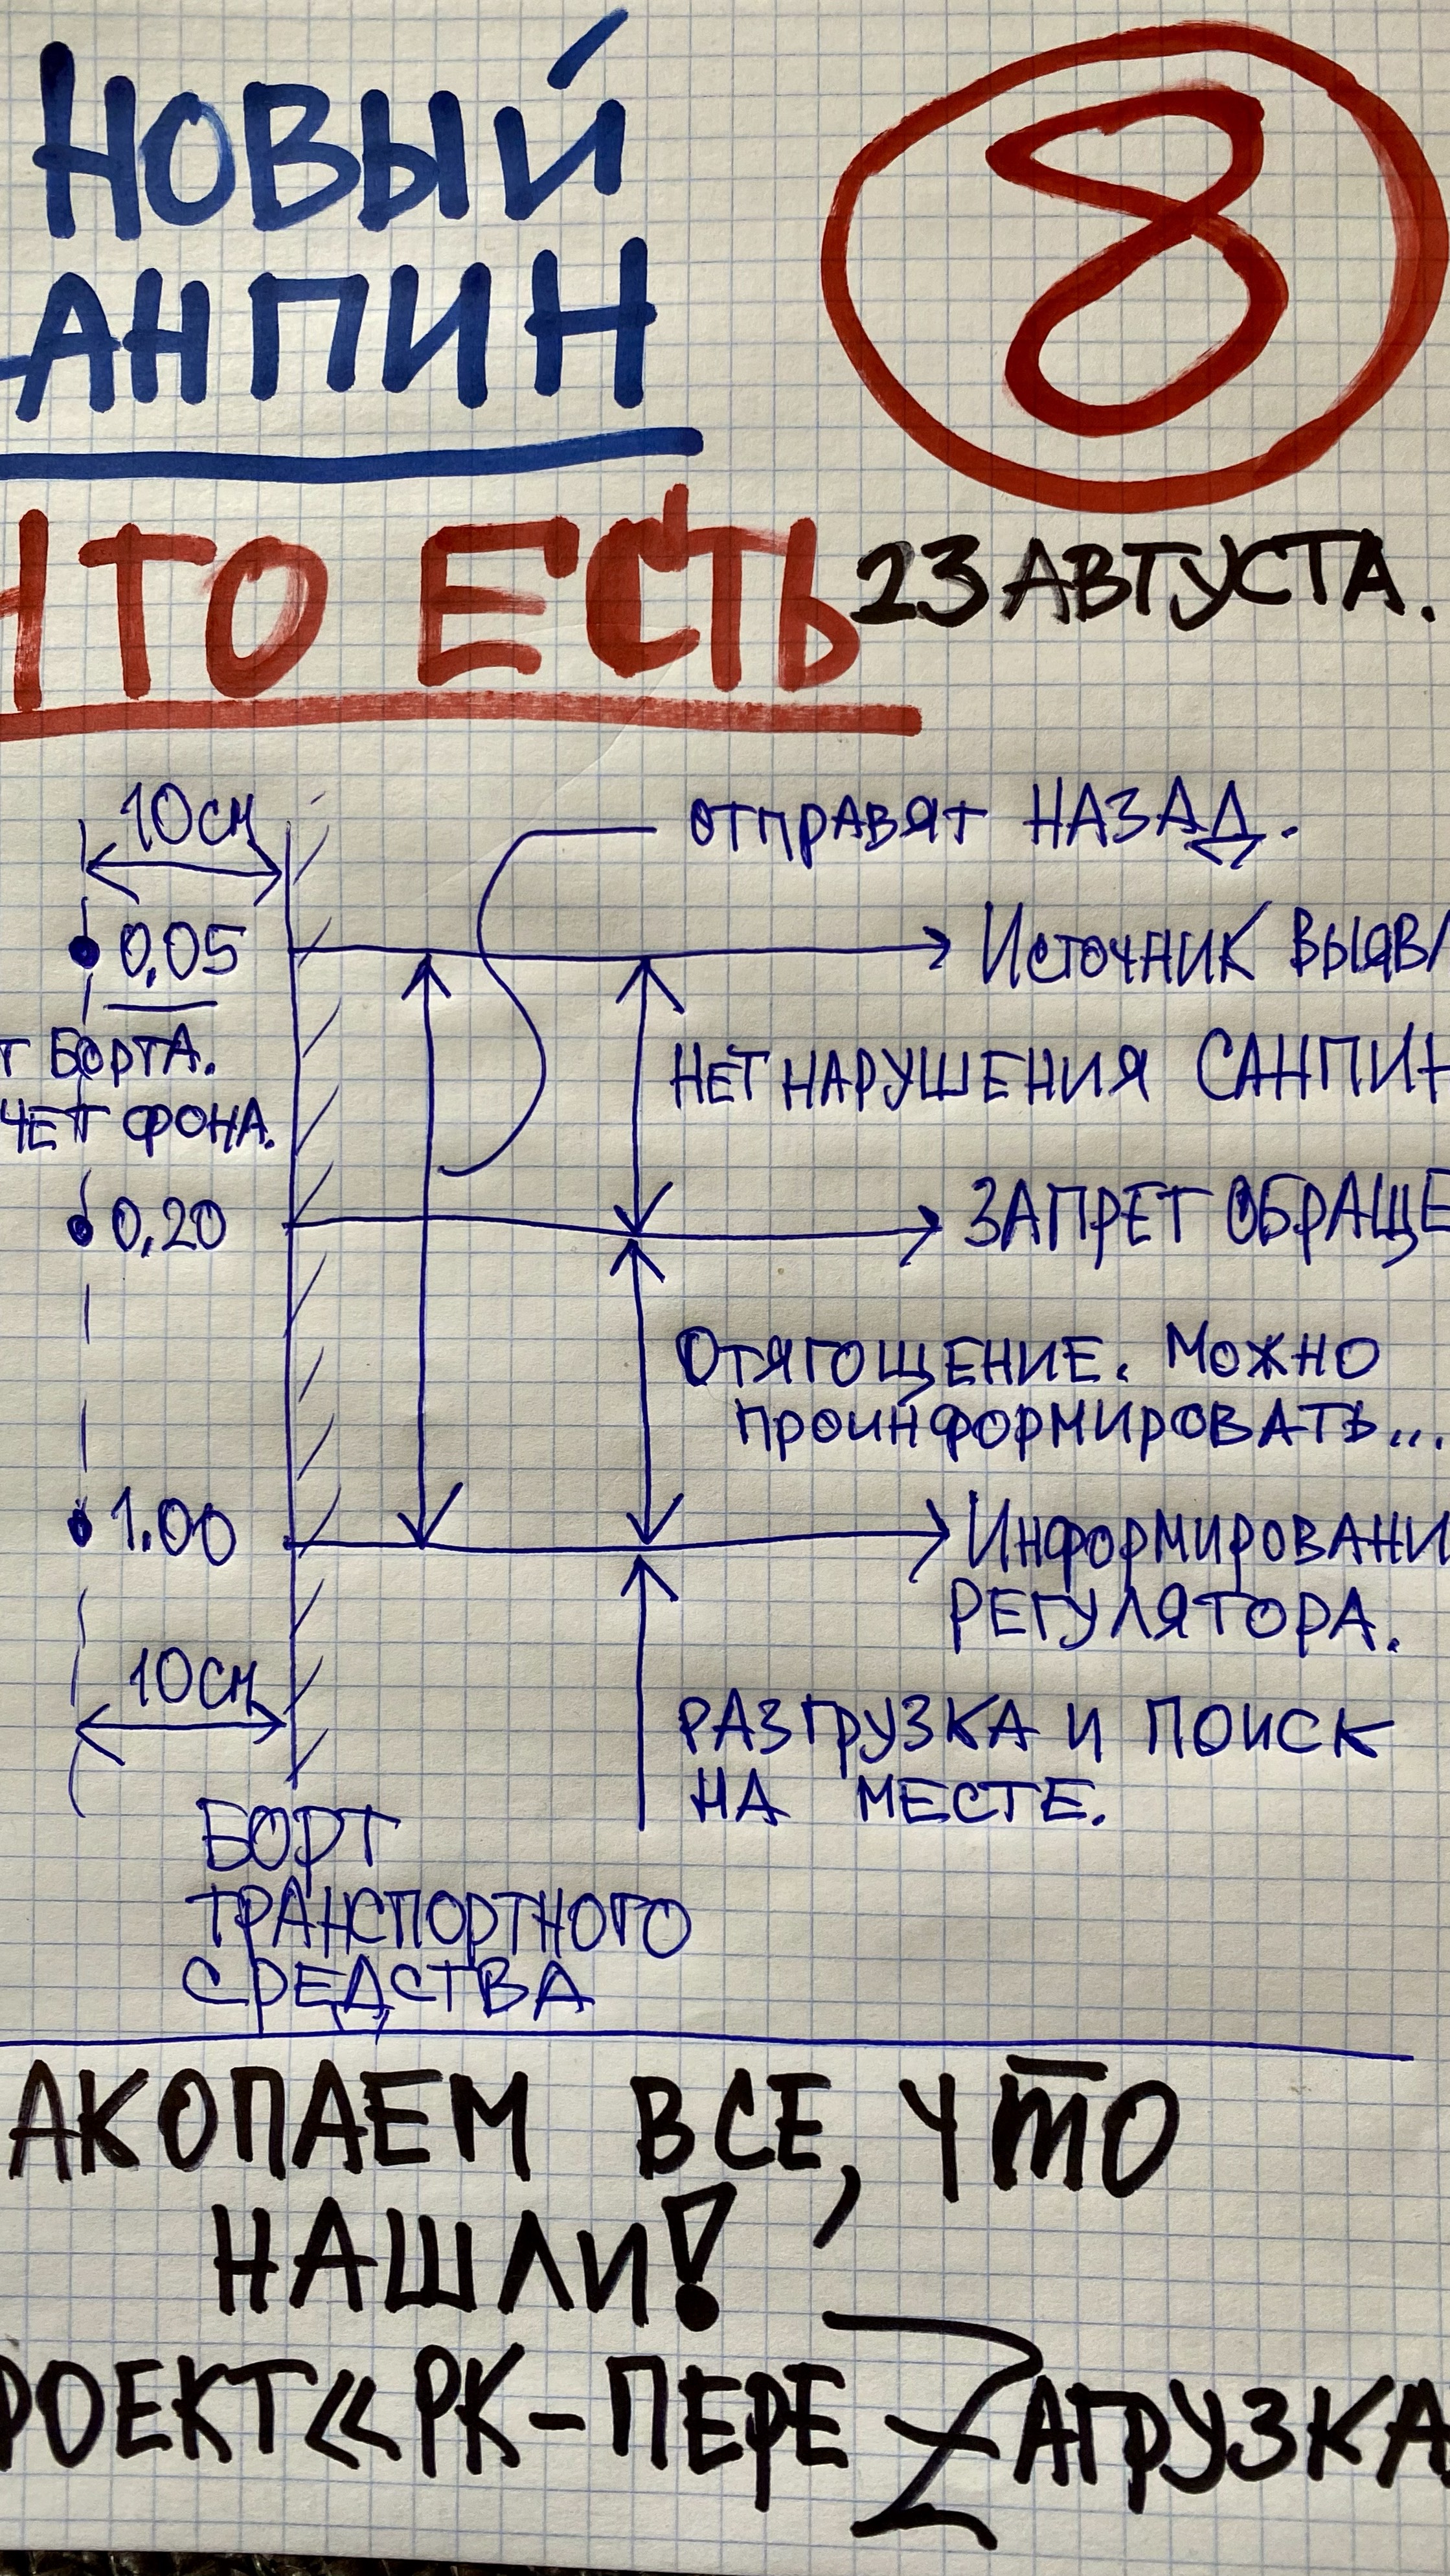 НОВЫЙ
АНПИН
8
ЧТО ЕСТЬ
23 АВГУСТА.
10 см
ОТПРАВЯТ НАЗАД.
0,05
ИСТОЧНИК ВЫЯВЛ
Т БОРТА.
НЕТ НАРУШЕНИЯ САНПИН
ЧЕТ ФОНА.
0,20
ЗАПРЕТ ОБРАЩЕ
ОТЯГОЩЕНИЕ. МОЖНО
ПРОИНФОРМИРОВАТЬ...
1.00
ИНФОРМИРОВАНИ
РЕГУЛЯТОРА.
10 см
РАЗГРУЗКА И ПОИСК
НА МЕСТЕ.
БОРТ
ТРАНСПОРТНОГО
СРЕДСТВА
АКОПАЕМ ВСЕ, ЧТО
НАШЛИ!
РОЕКТ «РК-ПЕРЕZАГРУЗКА